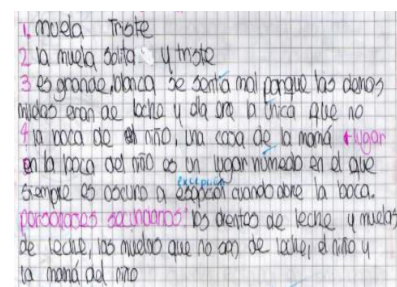 1. muela Triste
2 la muela solita y triste
3 es grande, blanca se sentia mal porque las demas
muelas eran de leche y ella era la única que no
4 la boca de el niño, una casa de la mamá + lugar
en la boca del niño es un lugar húmedo en el que
siempre es oscuro a excepción cuando abre la boca.
personajes secundarios: los dientes de leche y muelas
de leche, las muelas que no son de leche, el niño y
la mamá del niño